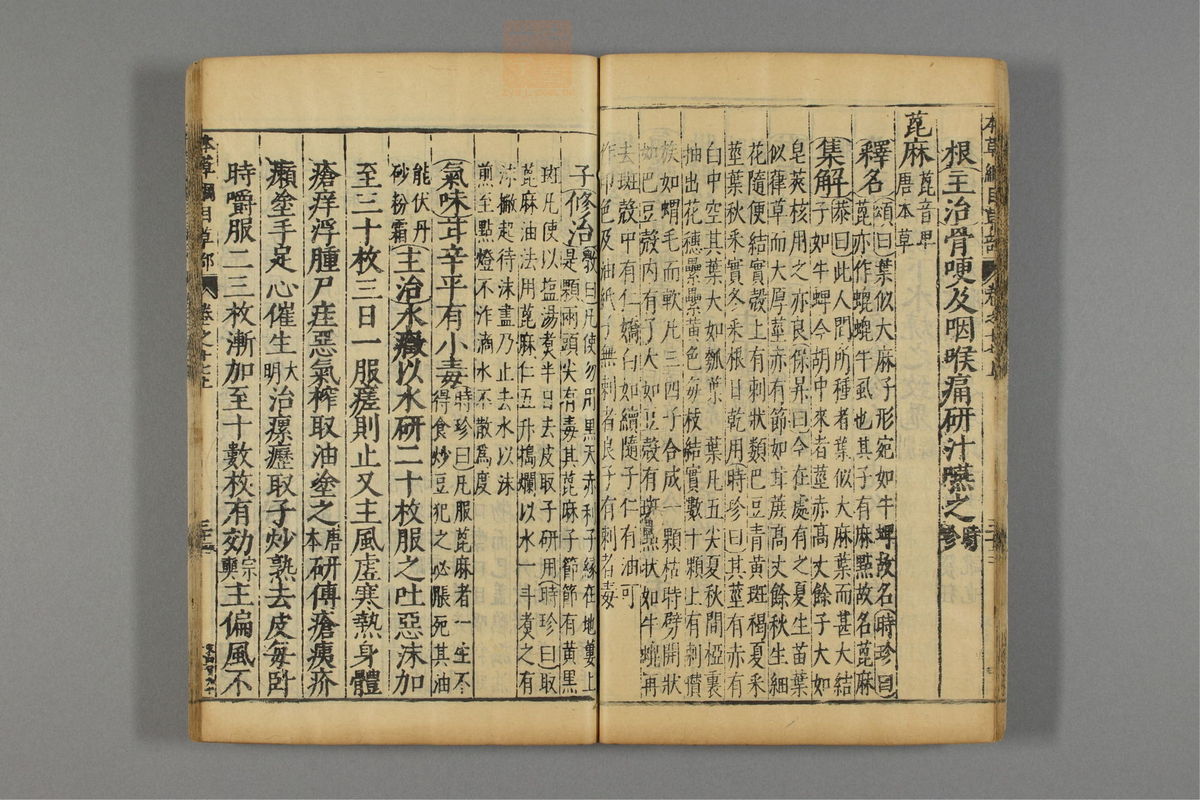 根主治骨哽及咽喉痛研汁嚥之時珍
蓖麻蓖音卑唐本草
釋名頌曰葉似大麻子形宛如牛蜱故名時珍曰
蓖亦作螕螕牛虱也其子有麻點故名蓖麻
集解恭曰此人間所種者葉似大麻葉而甚大結
子如牛蜱今胡中來者莖赤高丈餘子大如
皂莢核用之亦良保昇曰今在處有之夏生苗葉
似葎草而大厚莖赤有節如甘蔗高丈餘秋生細
花隨便結實殼上有刺狀類巴豆青黄斑褐夏采
莖葉秋采實冬采根日乾用時珍曰其莖有赤有
白中空其葉大如瓠葉葉凡五尖夏秋間椏裏
抽出花穗纍纍黄色每枝結實數十顆上有刺攢
簇如蝟毛而軟凡三四子合成一顆枯時劈開狀
如巴豆殼内有子大如豆殼有斑點狀如牛螕再
去斑殼中有仁嬌白如續隨子仁有油可
作印色及油紙子無刺者良子有刺者毒
子修治斆曰凡使勿用黒天赤利子縁在地蔞上
是顆兩頭尖有毒其蓖麻子節節有黄黒
斑凡使以塩湯煮半日去皮取子研用時珍曰取
蓖麻油法用蓖麻仁五升搗爛以水一斗煮之有
沫撇起待沫盡乃止去水以沫
煎至點燈不炸滴水不散爲度
氣味甘辛平有小毒時珍曰凡服蓖麻者一生不
得食炒豆犯之必脹死其油
能伏丹
砂粉霜主治水癥以水研二十枚服之吐惡沫加
至三十枚三日一服瘥則止又主風虛寒熱身體
瘡痒浮腫尸疰惡氣榨取油塗之唐本研傅瘡痍疥
癩塗手足心催生大明治瘰癧取子炒熟去皮每卧
時嚼服二三枚漸加至十數枚有効宗奭主偏風不
本草綱目草部 卷之十七上